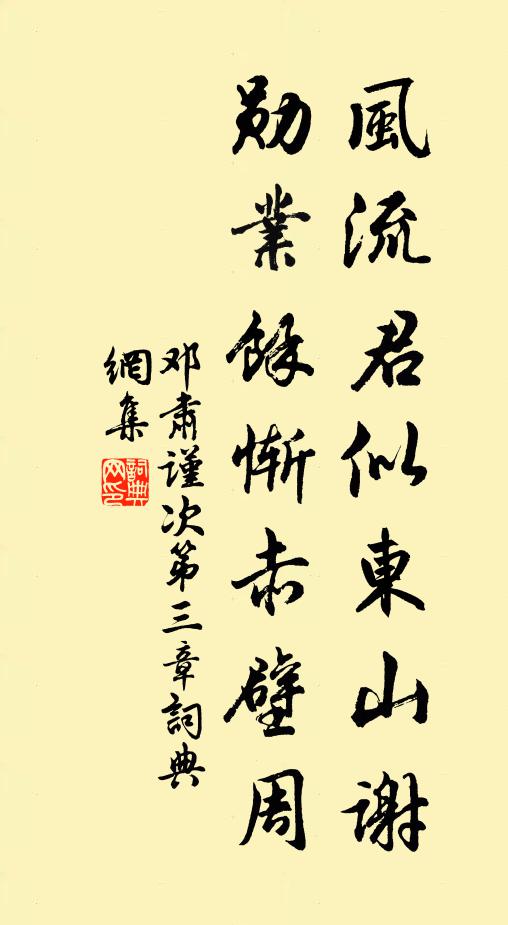 風流君似東山謝
勛業餘慚赤壁周
邓肅謹次第三章詞典
網集
詞典網印